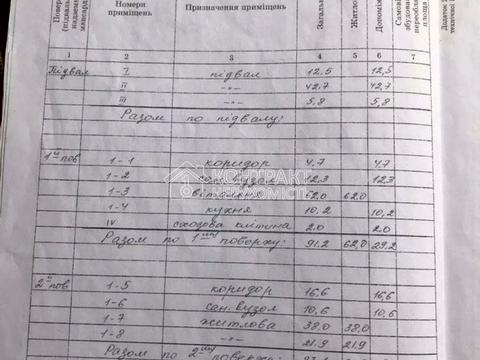 Номери приміщень Призначення приміщень
1 2 3 4 5 6 7
Підвал I підвал 12,5 12,5
II -"- 42,7 42,7
III -"- 5,8 5,8
Разом по підвалу:
КОНТРАКТ
1й пов 1-1 коридор 4,7 4,7
1-2 сан.вузол 12,3 12,3
НЕРУХОМІСТЬ
1-3 вітальня 62,0 62,0
1-4 кухня 10,2 10,2
IV сходова клітина 2,0 2,0
Разом по 1му поверху: 91,2 62,0 29,2
2й пов 1-5 коридор 16,6 16,6
1-6 сан.вузол 10,6 10,6
1-7 житлова 38,0 38,0
1-8 -"- 21,9 21,9
Разом по 2му поверху: